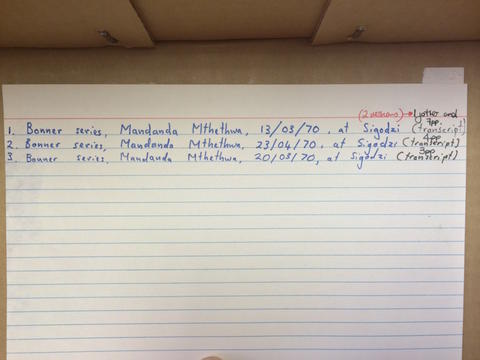 (2 versions) → 1 other and
7pp.
1. Bonner series, Mandanda Mthethwa, 13/03/70, at Sigodzi (transcript)
4pp
2. Bonner series, Mandanda Mthethwa, 23/04/70, at Sigodzi (transcript)
3pp
3. Bonner series, Mandanda Mthethwa, 20/05/70, at Sigodzi (transcript)